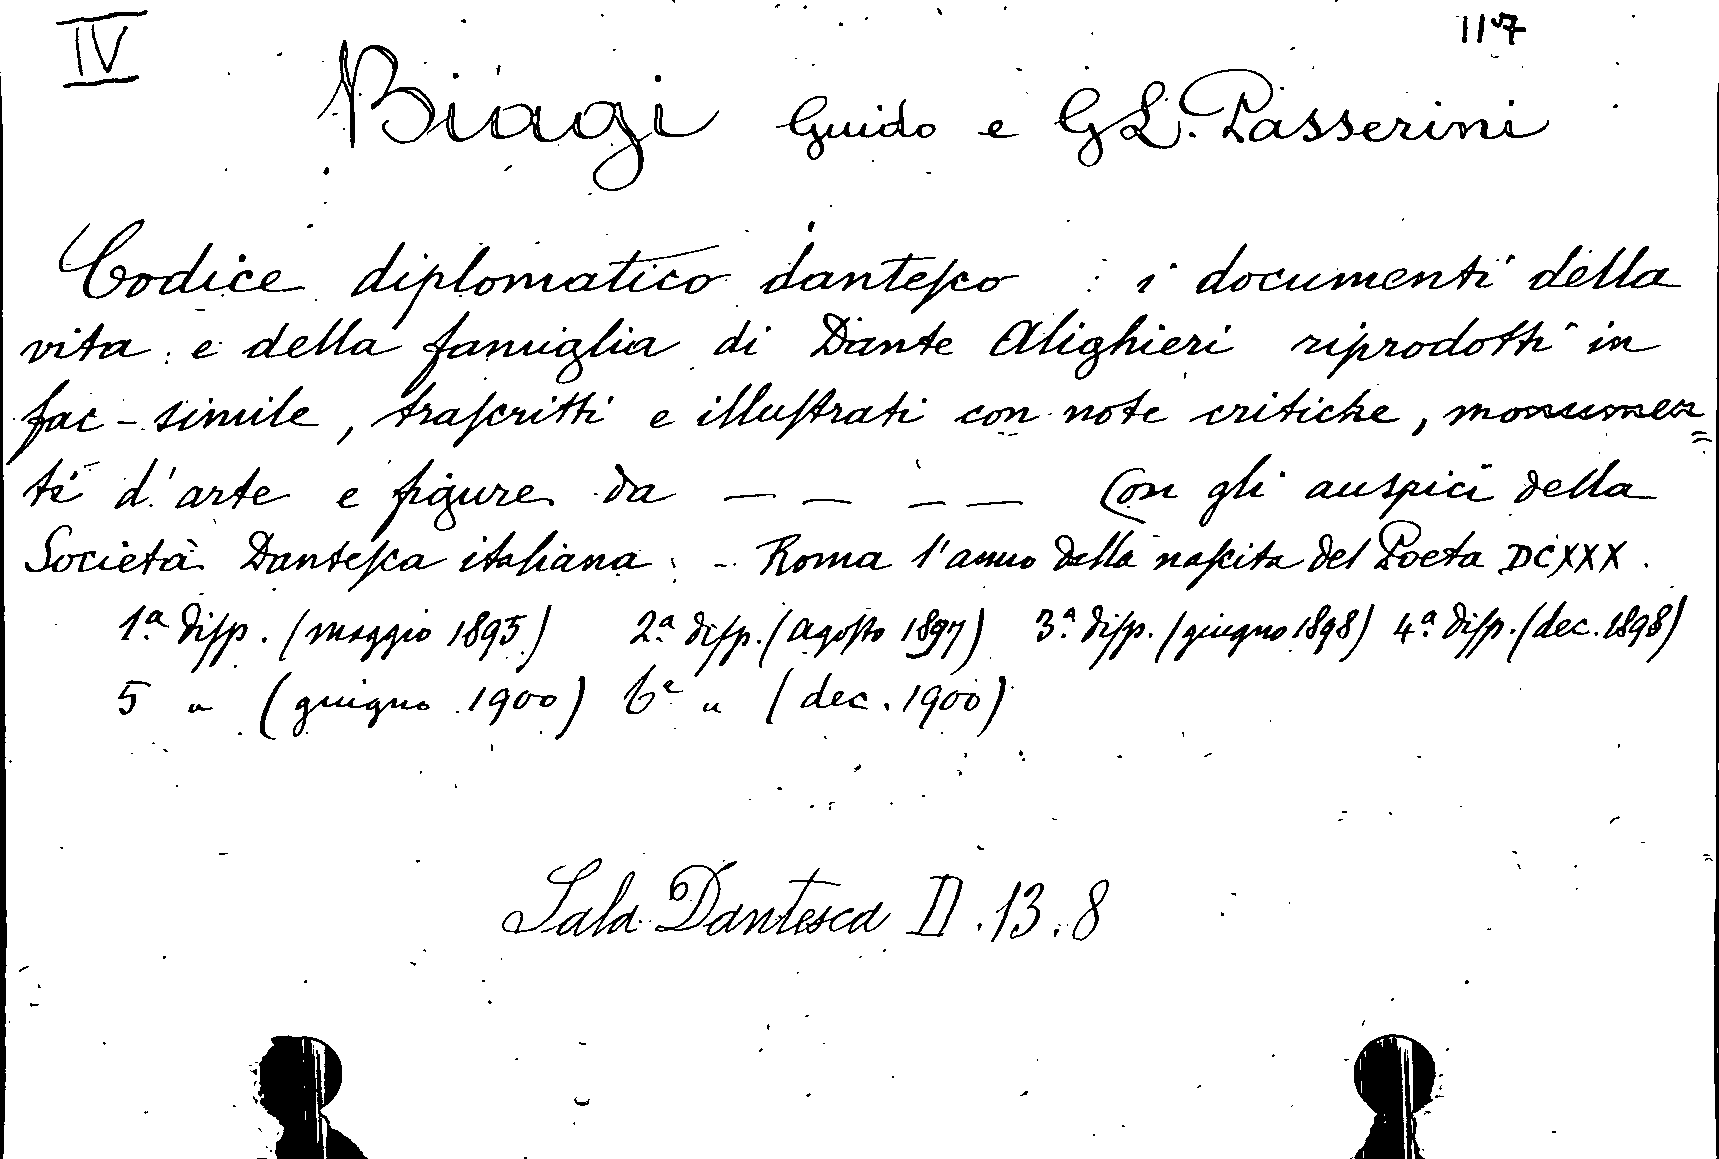 IV
117
Biagi Guido e G L. Passerini
Codice diplomatico dantesco : i documenti della
vita e della famiglia di Dante Alighieri riprodotti in
fac-simile, trascritti e illustrati con note critiche, monumen=
ti d'arte e figure da — — — — Con gli auspici della
Società Dantesca italiana. - Roma l'anno dalla nascita del Poeta DCXXX.
1ª disp. (maggio 1895) 2ª disp. (agosto 1897) 3ª disp. (giugno 1898) 4ª disp. (dec. 1898)
5 " (giugno 1900) 6ª " (dec. 1900)
Sala Dantesca II. 13. 8